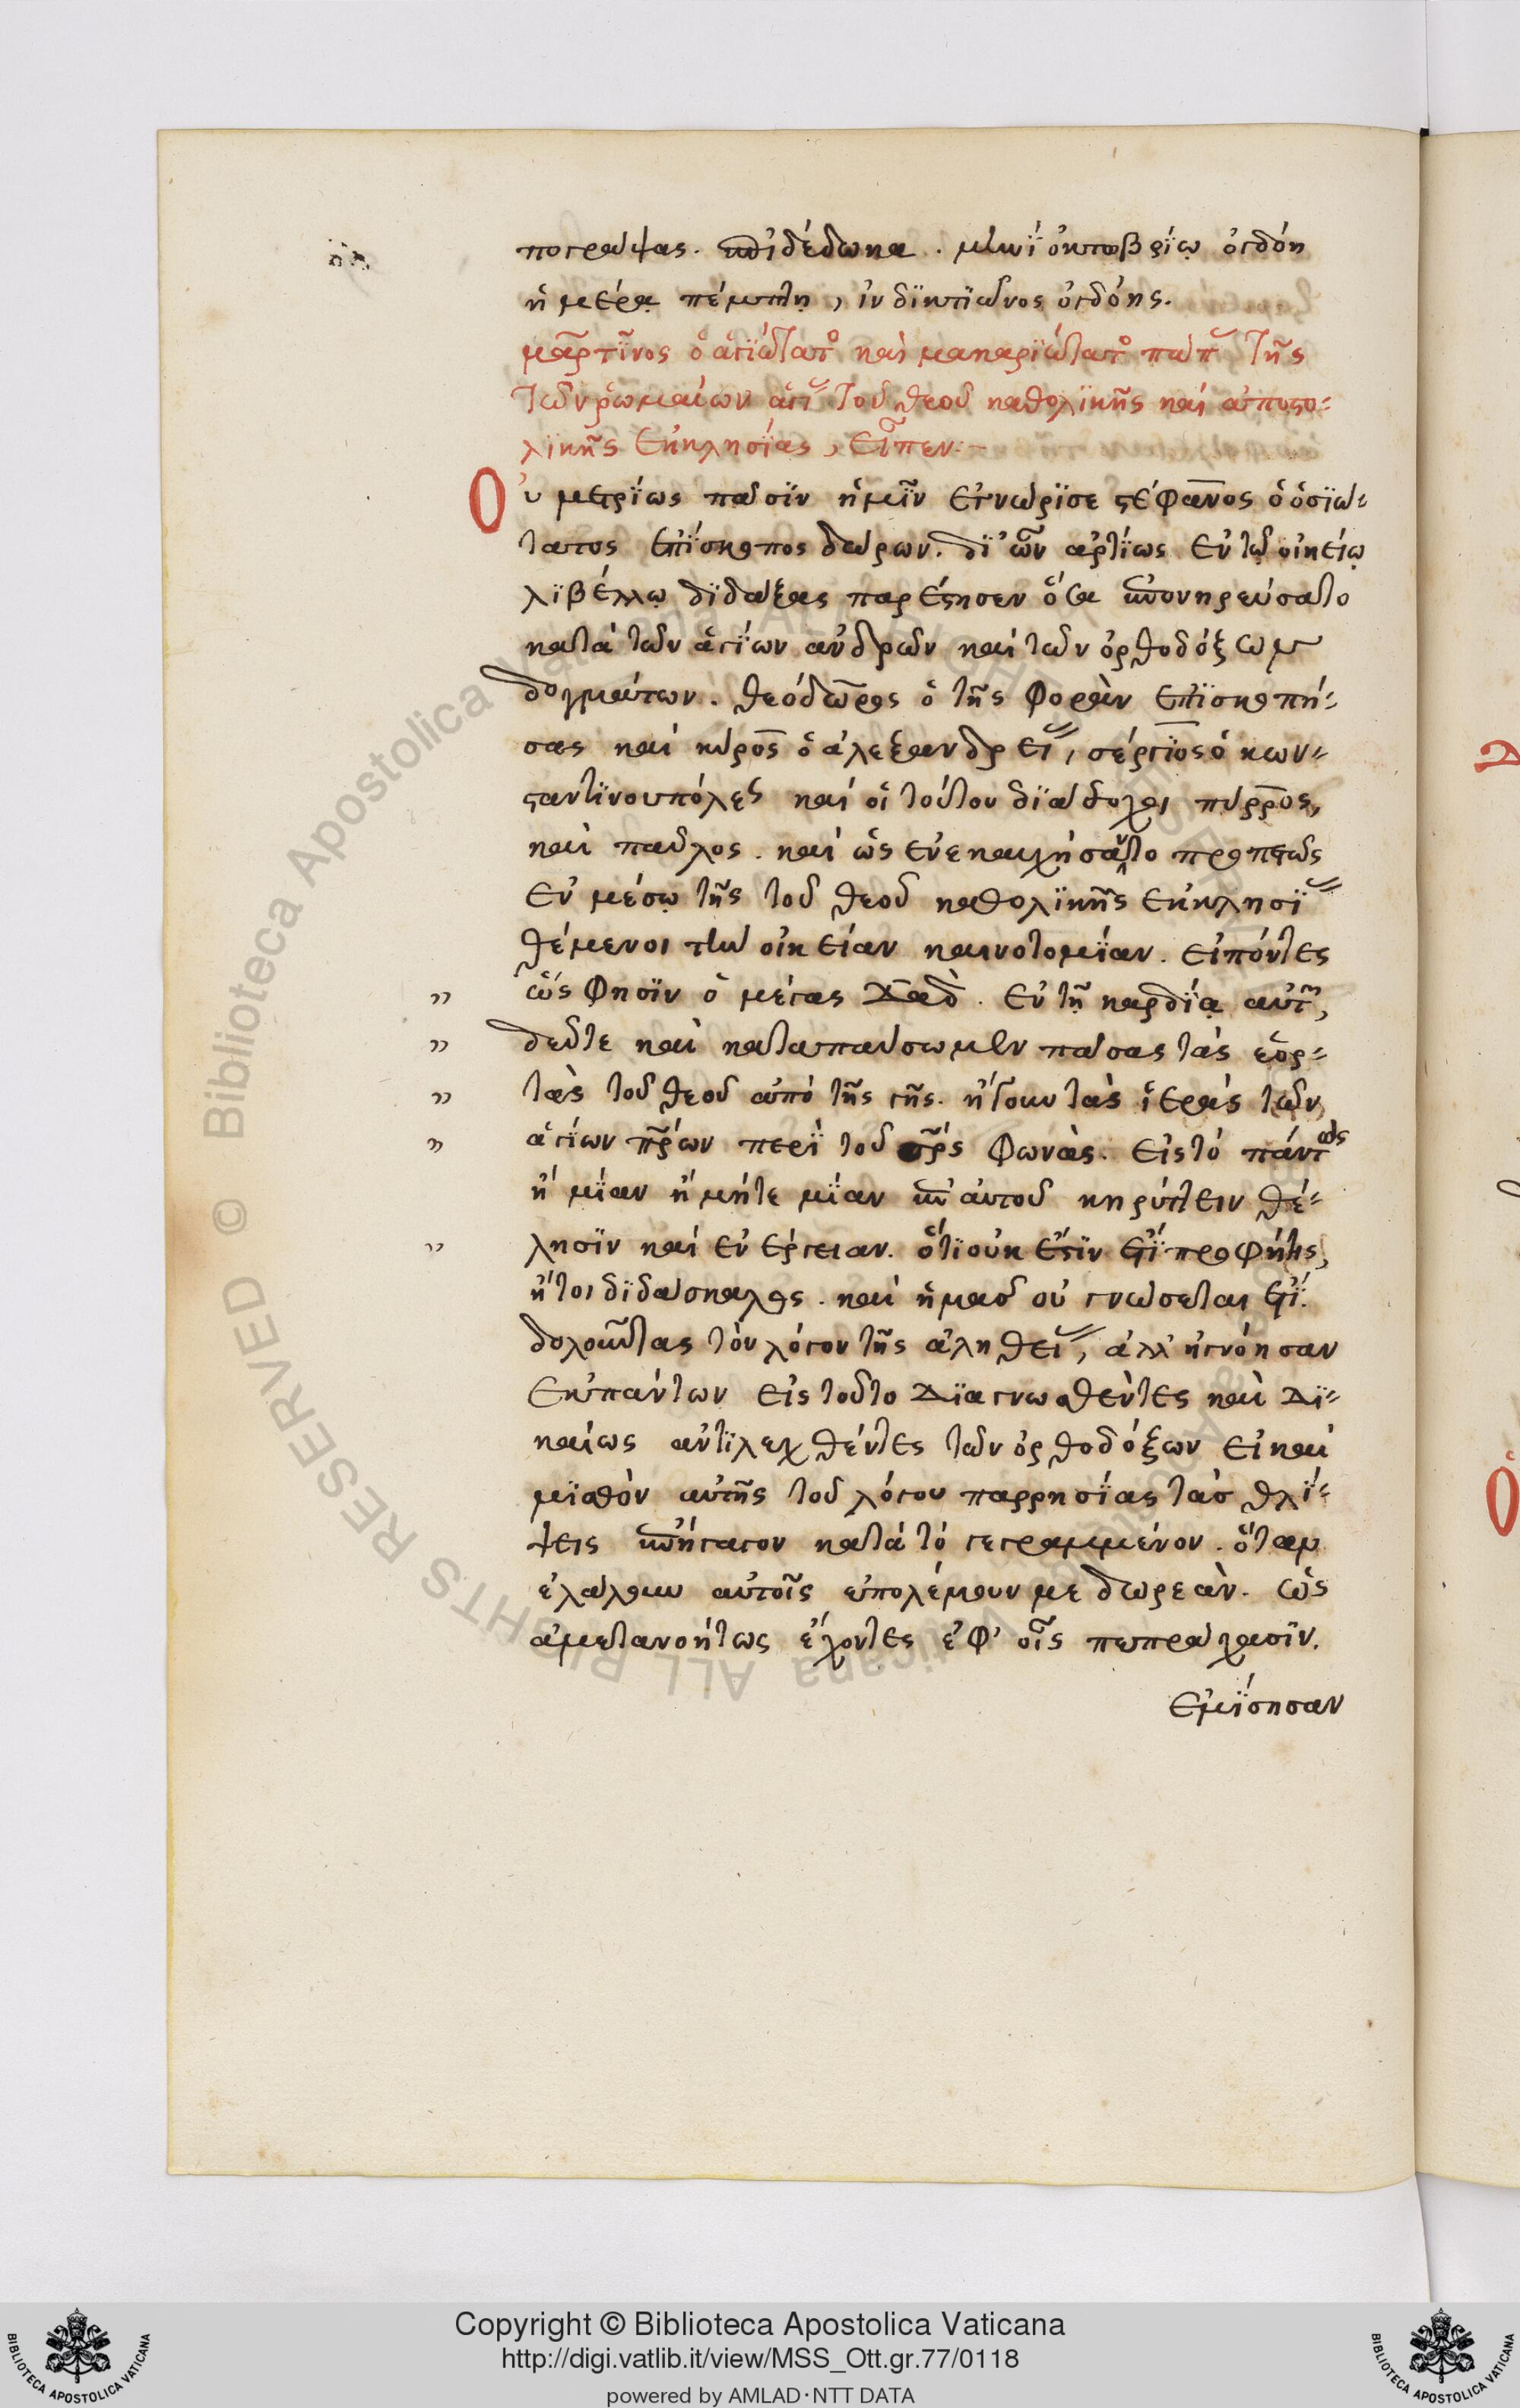 πογράψας. ἐπιδέδωκα. μηνὶ ὀκτωβρίω ὀγδόη
ἡμέρα πέμπτη, ἰνδικτιῶνος ὀγδόης.
μαρτῖνος ὁ ἁγιώτατ καὶ μακαριώτατ πάπ τῆς
τῶν ῥωμαίων ἁγί τοῦ θεοῦ καθολικῆς καὶ ἀποστο-
λικῆς ἐκκλησίας, εἶπεν:-
Οὐ μετρίως πᾶσιν ἡμῖν ἐγνώρισε στέφανος ὁ ὁσιώ-
τατος ἐπίσκοπος δώρων. δι' ὧν ἀρτίως ἐν τῶ οἰκείω
λιβέλλω διδάξας παρέστησεν ὅσα ἐπονηρεύσατο
κατὰ τῶν ἁγίων ἀνδρῶν καὶ τῶν ὀρθοδόξων
δογμάτων. θεόδωρος ὁ τῆς φορὰν ἐπισκοπή-
σας καὶ κῦρος ὁ ἀλεξανδρεί, σέργιος ὁ κων-
σταντινουπόλες καὶ οἱ τούτου διάδοχοι πύρρος,
καὶ παῦλος. καὶ ὡς ἐνεκαυχήσαντο προπετῶς
ἐν μέσω τῆς τοῦ θεοῦ καθολικῆς ἐκκλησί
θέμενοι τὴν οἰκείαν καινοτομίαν. εἰπόντες
ὥς φησιν ὁ μέγας δαδ. ἐν τῆ καρδία αὐτ,
" δεῦτε καὶ καταπαύσωμεν πάσας τὰς ἑορ-
" τὰς τοῦ θεοῦ ἀπὸ τῆς γῆς. ἤγουν τὰς ἱερὰς τῶν
" ἁγίων πρων περὶ τοῦ πρς φωνάς. εἰς τὸ πάντως
" ἢ μίαν ἢ μήτε μίαν ἐπ' αὐτοῦ κηρύττειν θέ-
" λησιν καὶ ἐνέργειαν. ὅτι οὐκ ἔστιν ἔτι προφήτης,
ἤτοι διδάσκαλος. καὶ ἡμᾶσ οὐ γνώσεται ἔτι.
δολοῦντας τὸν λόγον τῆς ἀληθεί, ἀλλ' ἠγνόησαν
ἐκ πάντων εἰς τοῦτο διαγνωσθέντες καὶ δι-
καίως ἀντιλεχθέντες τῶν ὀρθοδόξων εἰ καὶ
μισθὸν αὐτῆς τοῦ λόγου παρρησίας τὰσ θλί-
ψεις ἐπήγαγον κατὰ τὸ γεγραμμένον. ὅταν
ἐλάλουν αὐτοῖς ἐπολέμουν με δωρεάν. ὡς
ἀμετανοήτως ἔχοντες ἐφ' οἷς πεπράχασιν.
ἐμίσησαν
Copyright © Biblioteca Apostolica Vaticana
http://digi.vatlib.it/view/MSS_Ott.gr.77/0118
powered by AMLAD·NTT DATA